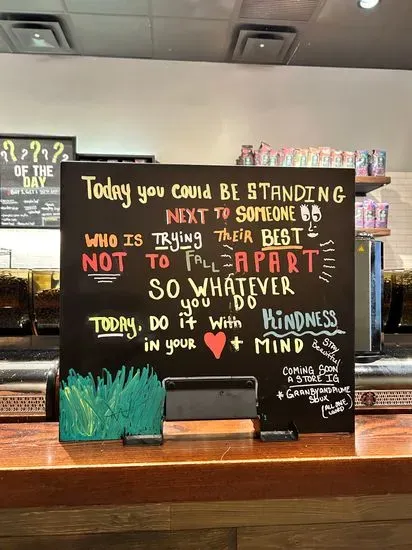 OF THE
DAY
Today you could BE STANDING
NEXT TO SOMEONE
WHO IS TRYING THEIR BEST
NOT TO FALL APART
SO WHATEVER
you DO
TODAY, DO it With KINDNESS
in your + MIND
STAY
Beautiful
COMING SOON
A STORE IG
#GRANBYANDPLUME
SBUX
(ALL ARE
LOVED)